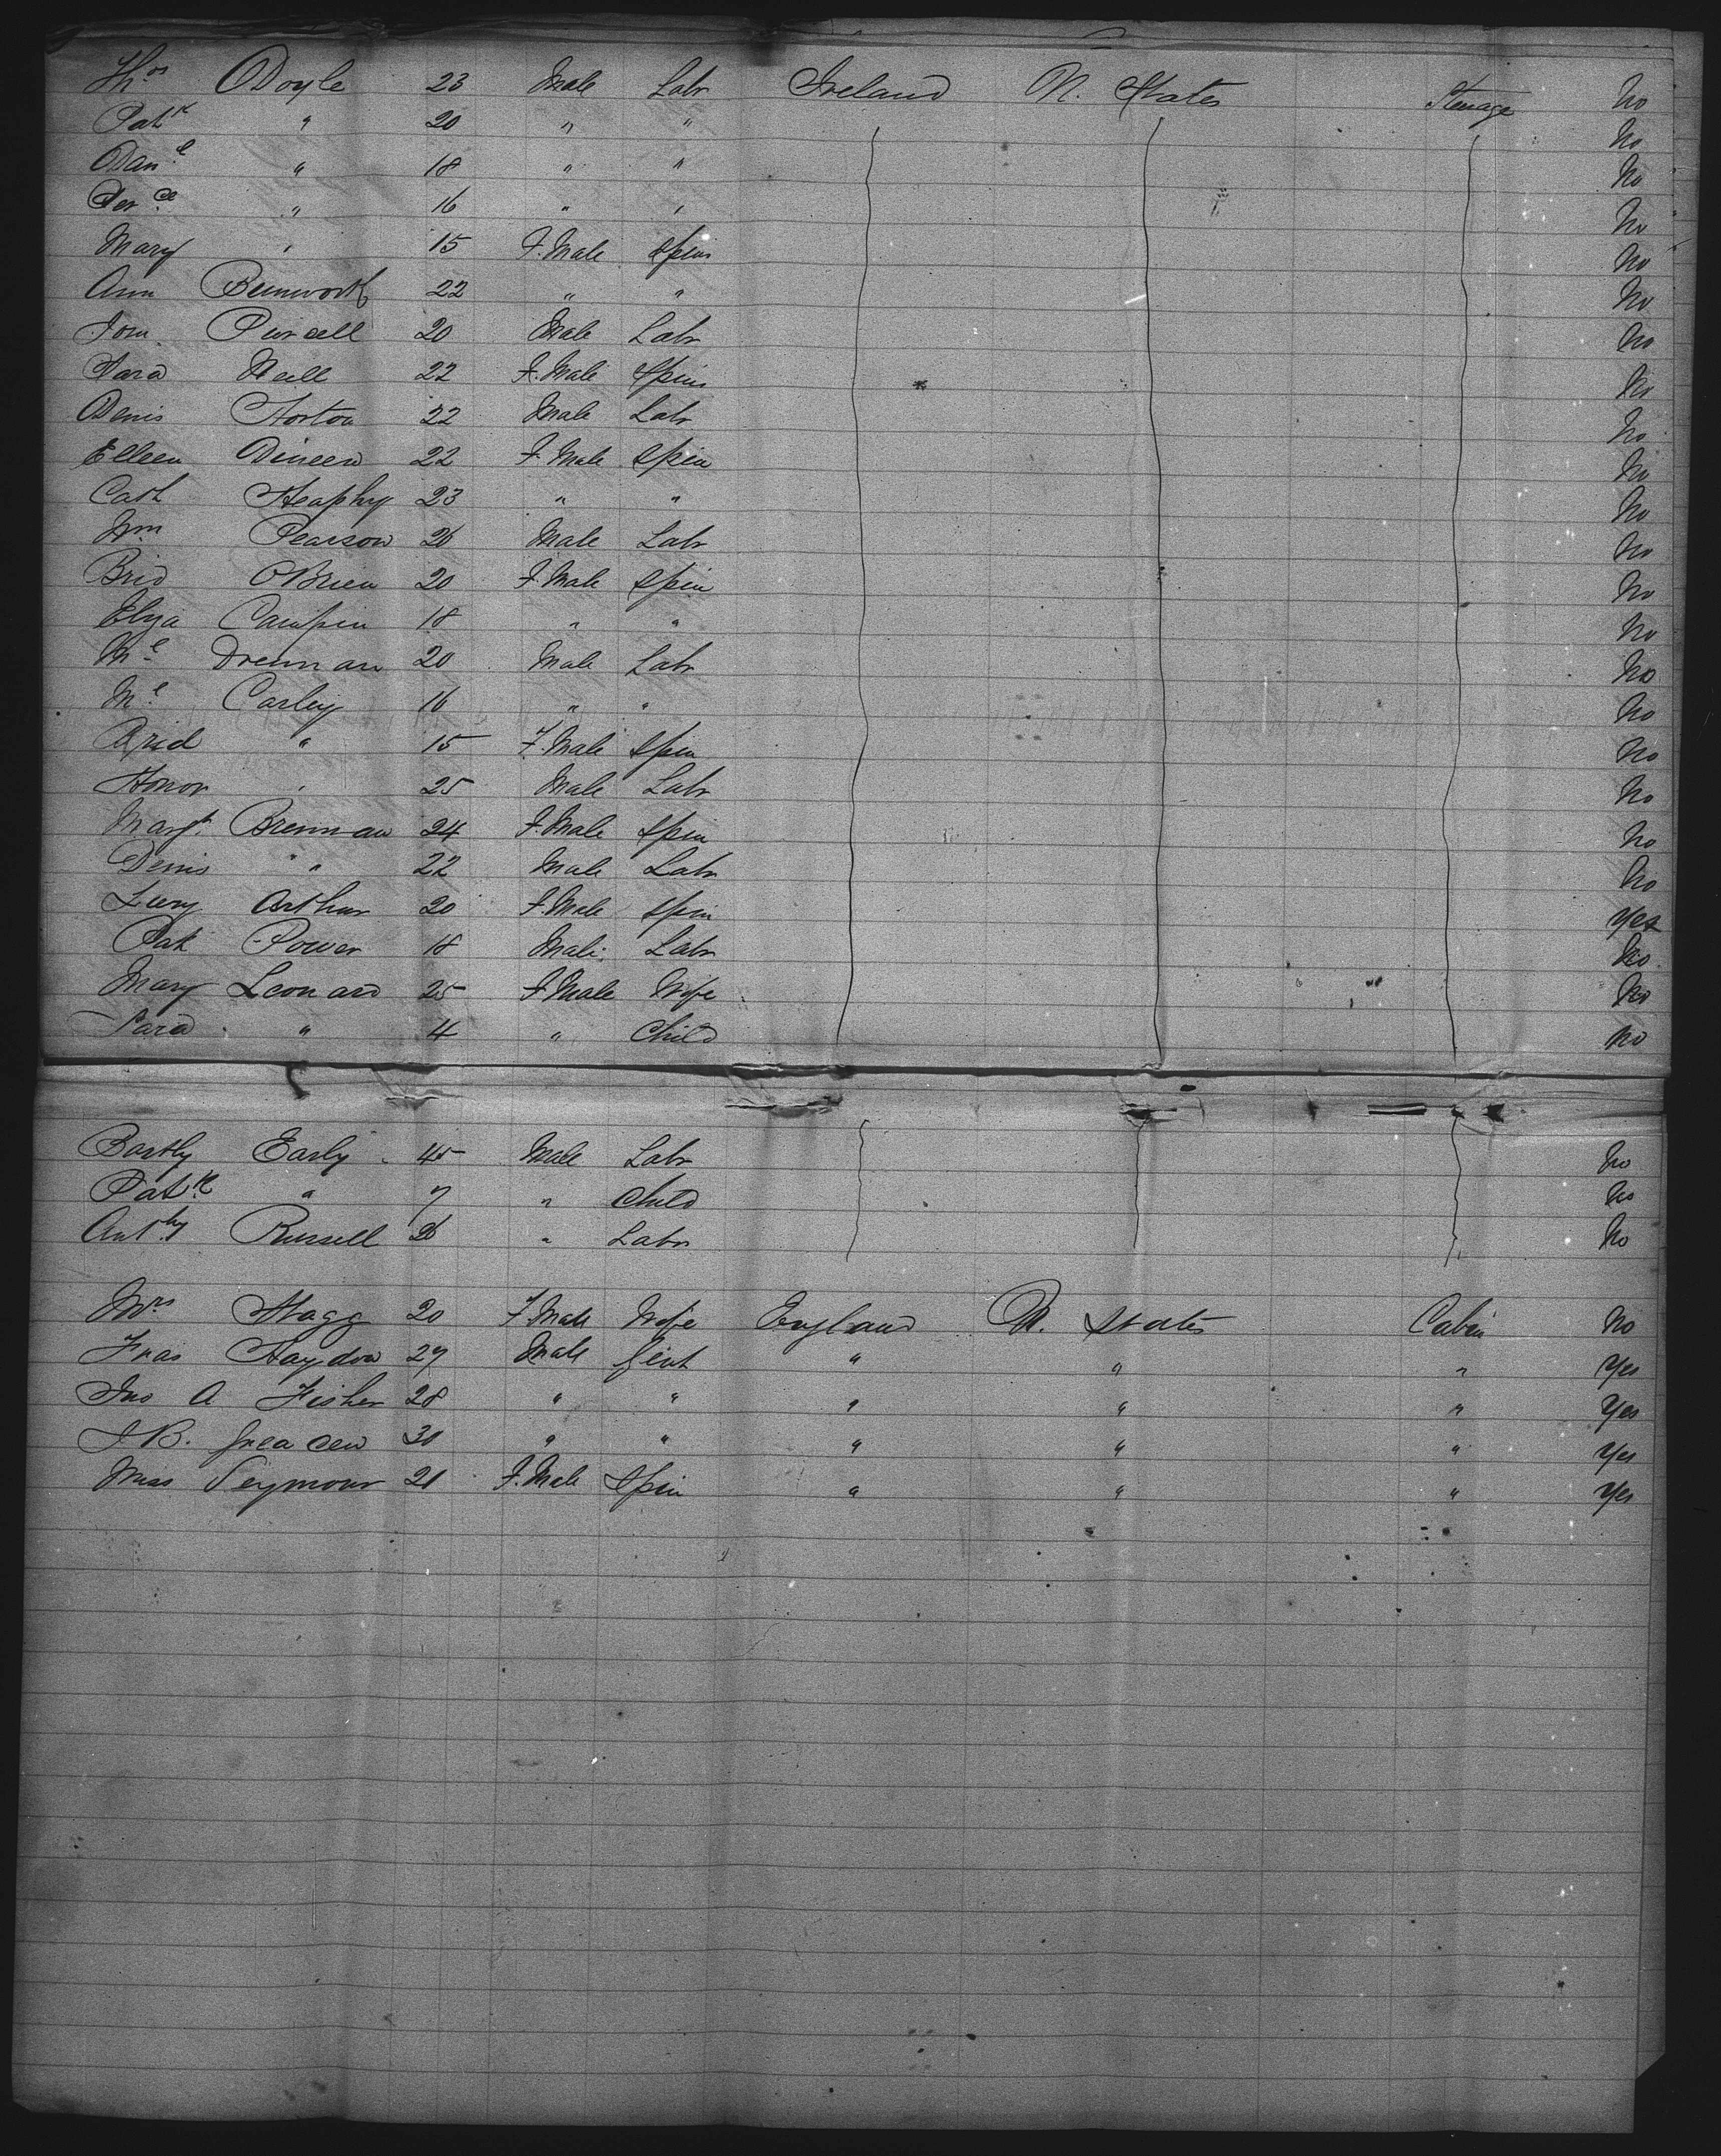 Thos ODoyle 23 Male Labr Ireland U. States Steerage No
Patk " 20 " " No
Danl " 18 " " No
" 16 " " No
Mary " 15 F.Male Spin No
Ann 22 " " No
Purcell 20 Male Labr No
Sara Neill 22 F.Male Spin No
Denis Horton 22 Male Labr No
Elleen Dineen 22 F.Male Spin No
Cath Heaphy 23 " " No
Wm Pearson 26 Male Labr No
Brid OBrien 20 F.Male Spin No
Eliza 18 " " No
Ml Drennan 20 Male Labr No
Ml Carley 16 " " No
Brid " 15 F.Male Spin No
Honor " 25 Male Labr No
Margt Brennan 24 F.Male Spin No
Denis " " 22 Male Labr No
Lucy Arthur 20 F.Male Spin Yes
Pat Power 18 Male Labr No
Mary Leonard 25 F.Male Wife No
Sara " 4 " Child No
Bartly Early 45 Male Labr No
Patk " 7 " Child No
Anthy Russell 26 " Labr No
Mrs Stagg 20 F.Male Wife England U. States Cabin No
Fras Haydon 27 Male Gent " " " Yes
Jno A Fisher 28 " " " " " Yes
J B. Greacen 30 " " " " " Yes
Miss Seymour 21 F.Male Spin " " " Yes